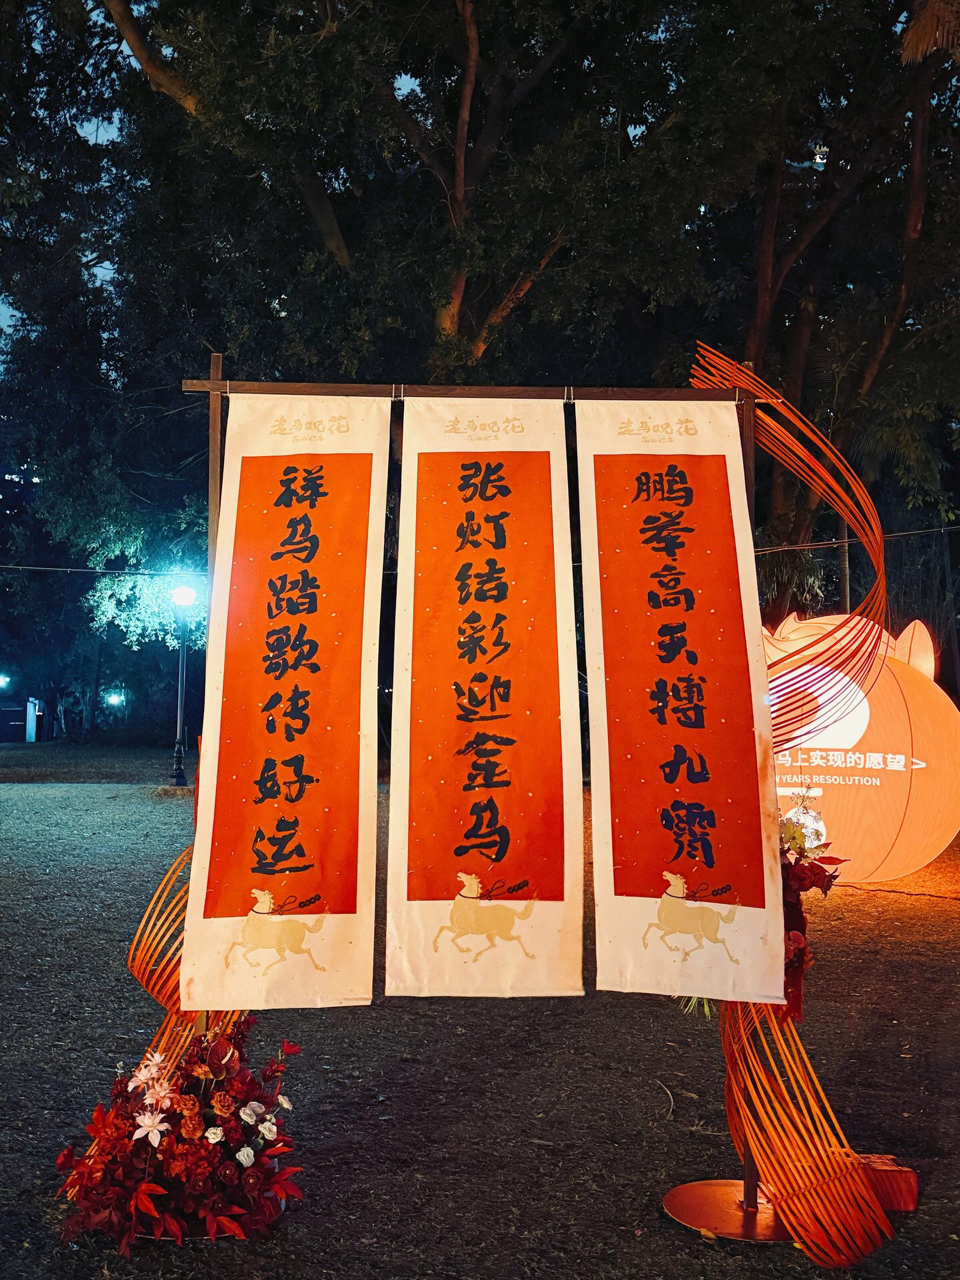 走马观花
走马观花
走马观花
祥马踏歌传好运
张灯结彩迎金马
鹏举高天搏九霄
马上实现的愿望 >
YEARS RESOLUTION